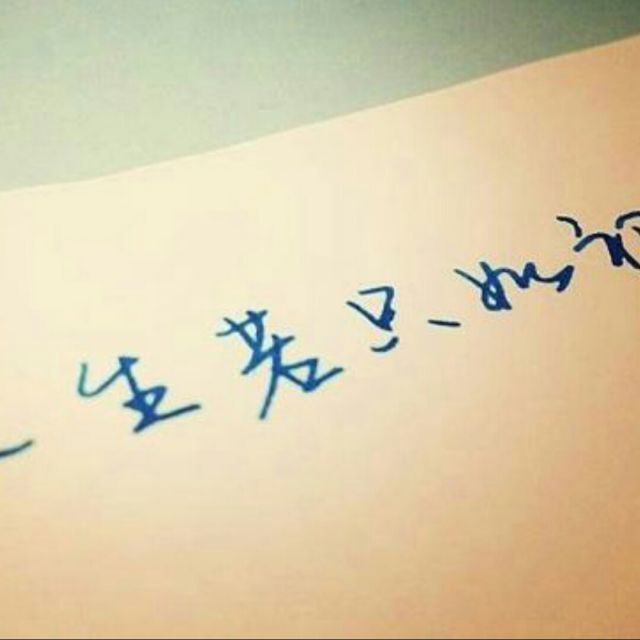 生若只如初